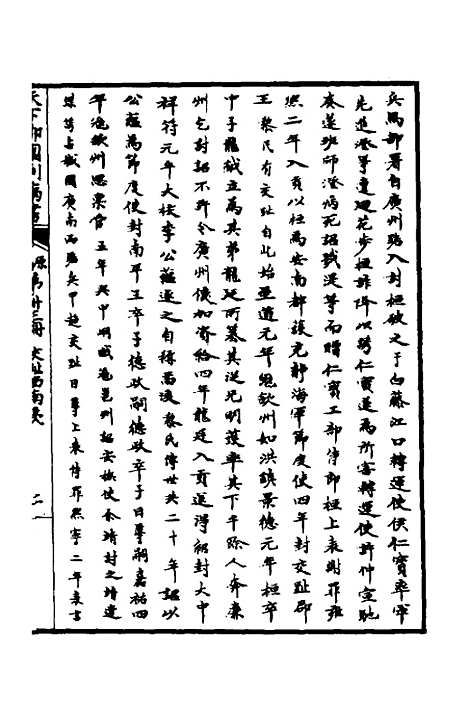 兵馬部署自廣州路入討桓破之于白藤江口轉運使侯仁寶率軍
先進澄等逗遛花步桓詐降以誘仁寶遂為所害轉運使許仲宣馳
奏遂班師澄病死詔戮湜等而贈仁寶工部侍郎桓上表謝罪雍
熙二年入貢以桓為安南都護充靜海軍節度使四年封交趾郡
王黎民有交趾自此始至道元年寇欽州如洪鎮景德元年桓卒
中子龍鉞立為其弟龍廷所篡其從兄明護率其下千餘人奔廉
州乞討詔不許令廣州優加資給四年龍廷入貢遂得襲封大中
祥符元年大校李公蘊逐之自稱留後黎氏傳世共二十年詔以
公蘊為節度使封南平王卒子德政嗣德政卒子日尊嗣嘉祐四
年寇欽州思稟管五年與甲峒賊寇邕州詔安撫使余靖討之靖遣
諜誘占城同廣南西路兵甲趨交趾日尊上表待罪熙寧二年表言
天下郡國利病書
原第卅三冊 交阯西南夷
二